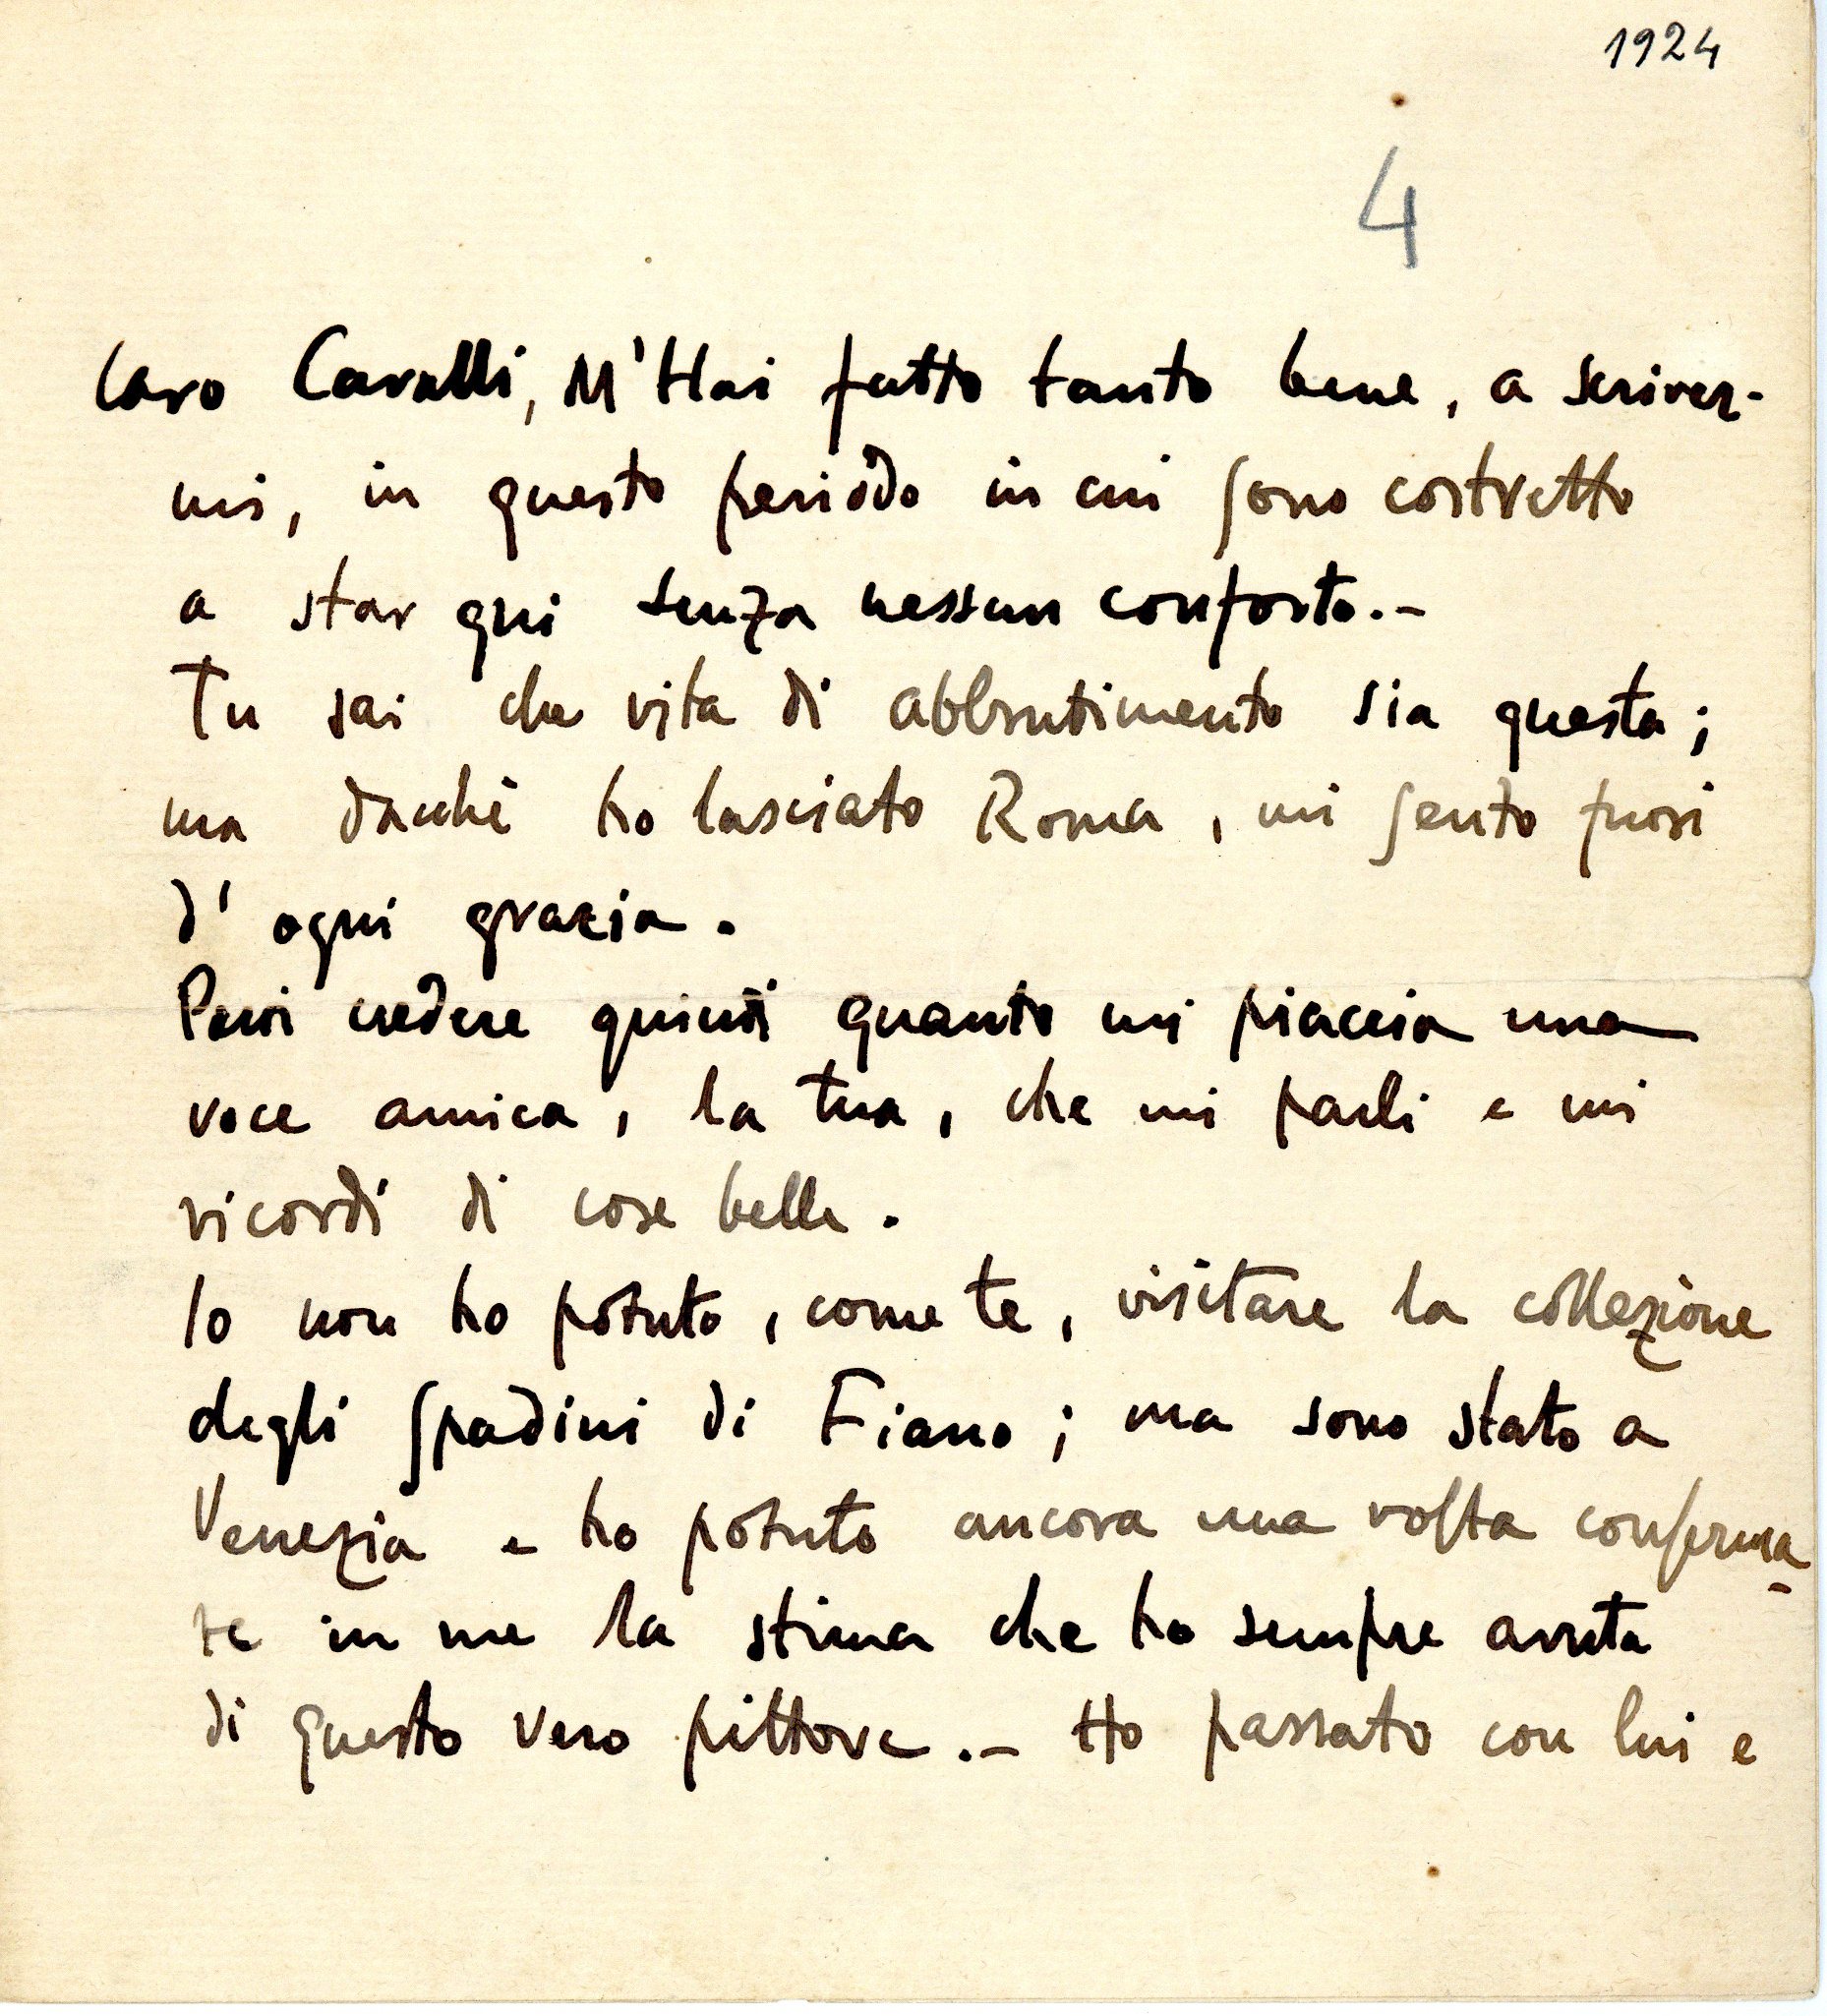 1924
4
Caro Cavalli, M'Hai fatto tanto bene, a scriver-
mi, in questo periodo in cui sono costretto
a star qui senza nessun conforto.-
Tu sai che vita di abbrutimento sia questa;
ma dacchè ho lasciato Roma, mi sento fuori
d'ogni grazia.
Puoi credere quindi quanto mi piaccia una
voce amica, la tua, che mi parli e mi
ricordi di cose belle.
Io non ho potuto, come te, visitare la collezione
degli Spadini di Fiano; ma sono stato a
Venezia e ho potuto ancora una volta conferma-
re in me la stima che ho sempre avuta
di questo vero pittore.- Ho passato con lui e